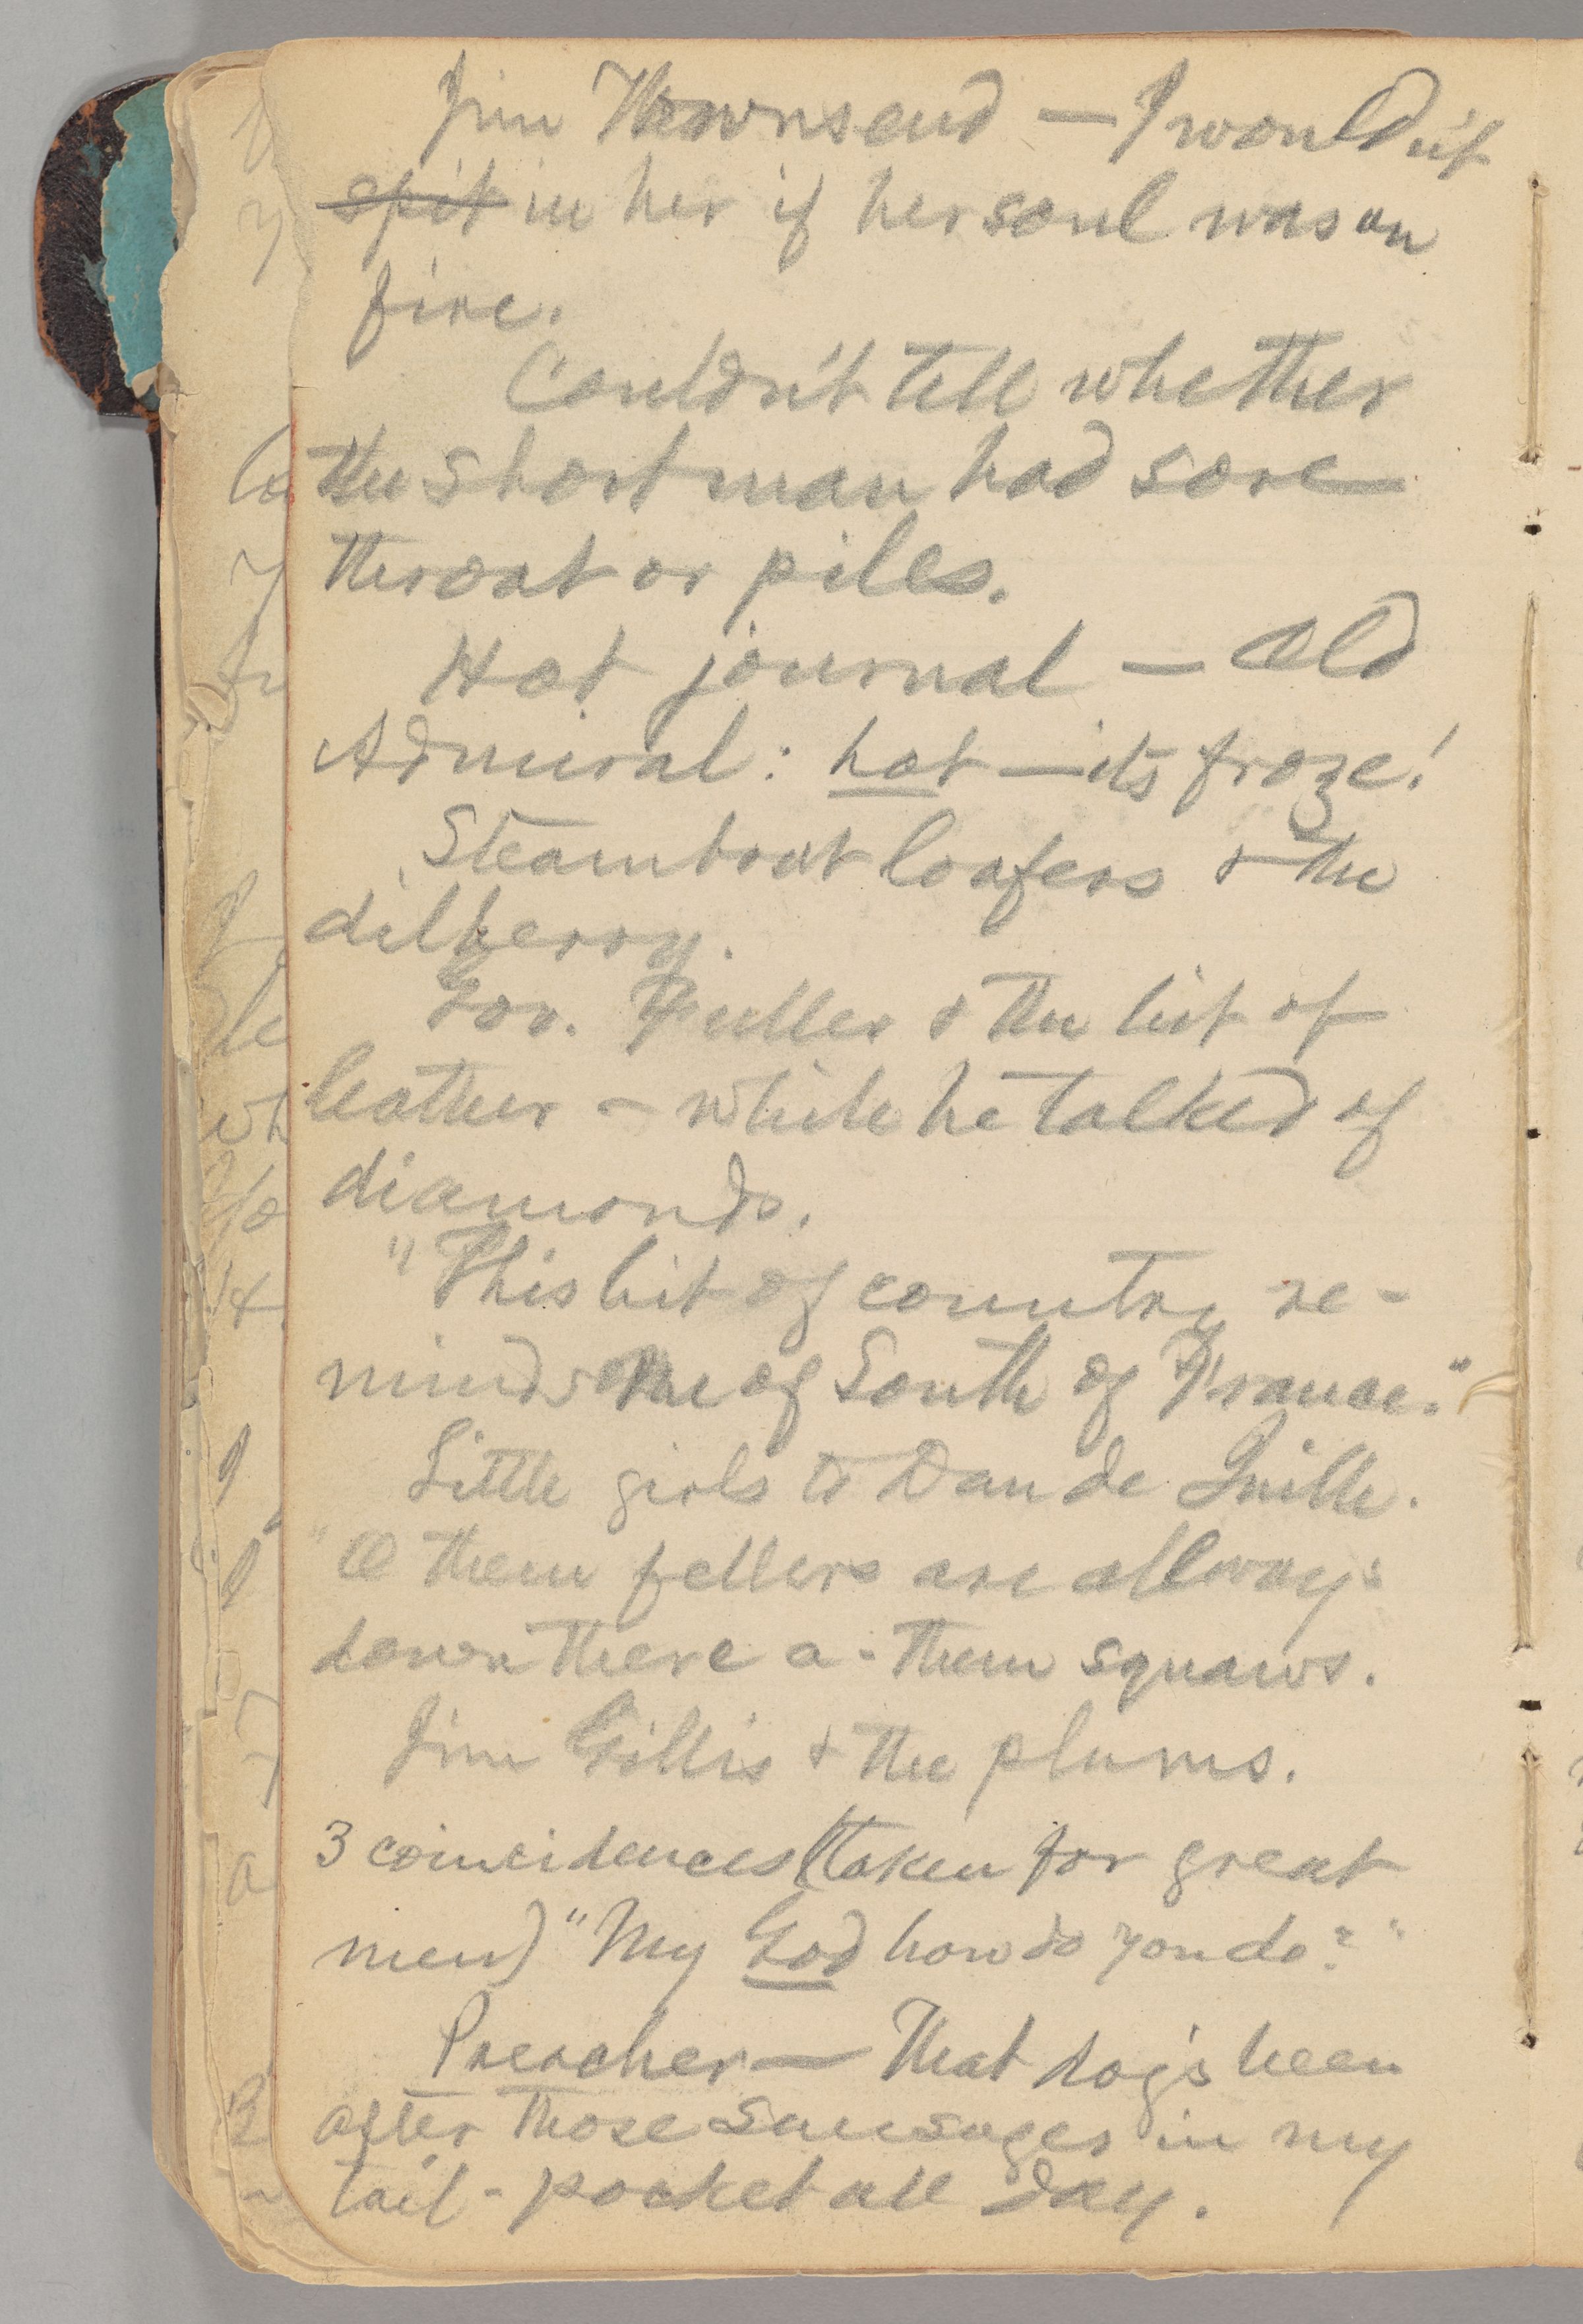 Jim Townsend — I wouldn't
spit in her if her soul was on
fire.
Couldn't tell whether
the short man had sore
throat or piles.
Hot journal — Old
Admiral: hot — its froze!
Steamboat loafers & the
dilberry.
Gov. Fuller & the bit of
leather – while he talked of
diamonds.
"This bit of country re-
minds me of South of France."
Little girls to Dan de Quille.
"O them fellers are allways
down there a - them squaws.
Jim Gillis & the plums.
3 coincidences (taken for great
men) "My God how do you do?"
Preacher — That dog's been
after those sausages in my
tail-pocket all day.